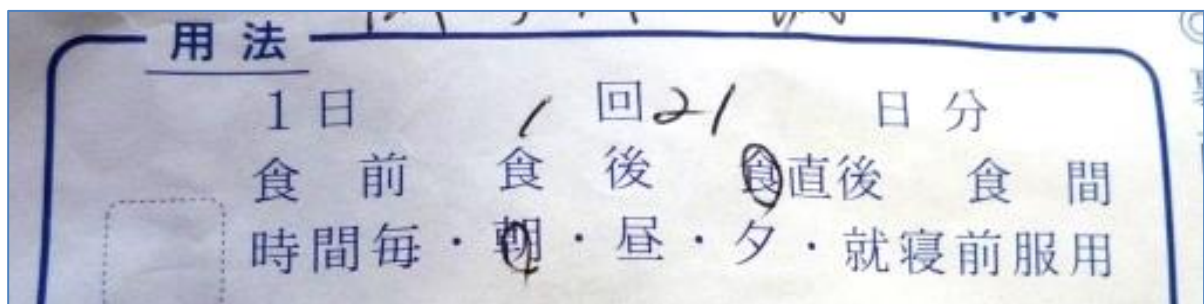 用法
1日 1 回 21 日分
食前 食後 食直後 食間
時間毎・朝・昼・夕・就寝前服用